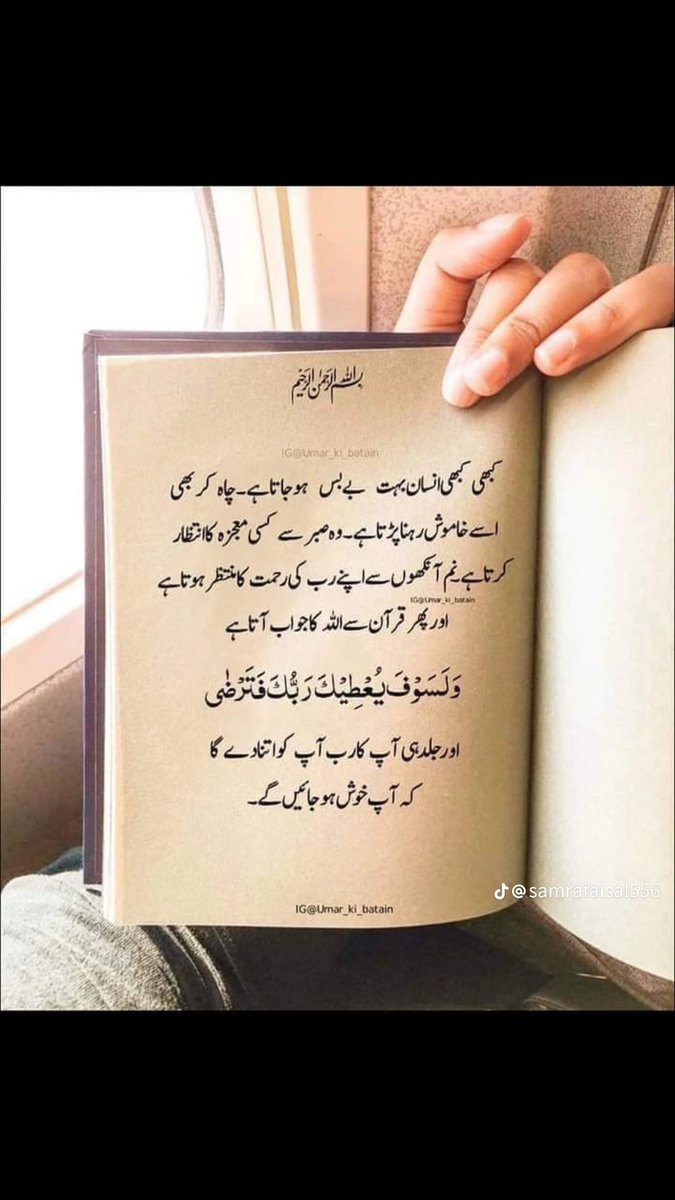 بسم الله الرحمن الرحيم
IG@Umar_ki_batain
کبھی کبھی انسان بہت بے بس ہو جاتا ہے۔ چاہ کر بھی
اسے خاموش رہنا پڑتا ہے۔ وہ صبر سے کسی معجزہ کا انتظار
کرتا ہے نم آنکھوں سے اپنے رب کی رحمت کا منتظر ہوتا ہے
IG@Umar_ki_batain
اور پھر قرآن سے اللہ کا جواب آتا ہے
وَلَسَوْفَ يُعْطِيْكَ رَبُّكَ فَتَرْضٰى
اور جلد ہی آپ کا رب آپ کو اتنا دے گا
کہ آپ خوش ہو جائیں گے۔
@samrafaisal556
IG@Umar_ki_batain